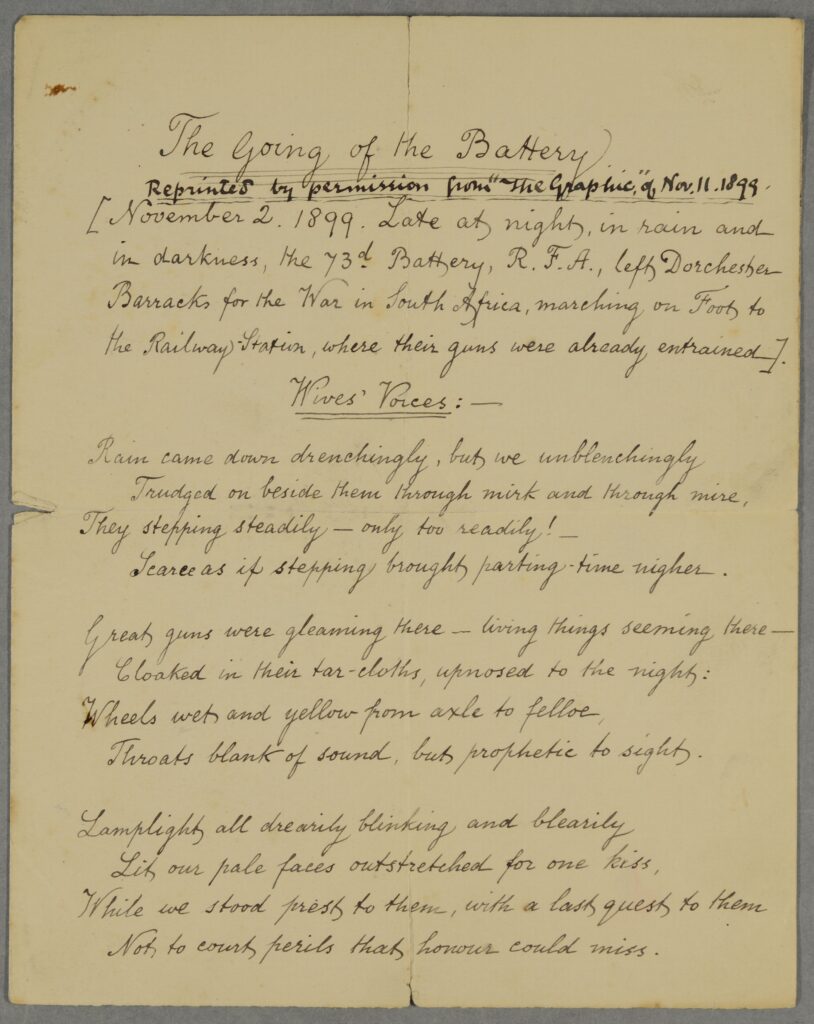 The Going of the Battery
Reprinted by permission from "The Graphic," of Nov. 11. 1899.
[November 2. 1899. Late at night, in rain and
in darkness, the 73d Battery, R. F. A., left Dorchester
Barracks for the War in South Africa, marching on Foot to
the Railway-Station, where their guns were already entrained].
Wives' Voices: —
Rain came down drenchingly, but we unblenchingly
Trudged on beside them through mirk and through mire,
They stepping steadily — only too readily! —
Scarce as if stepping brought parting-time nigher.
Great guns were gleaming there — living things seeming there —
Cloaked in their tar-cloths, upnosed to the night:
Wheels wet and yellow from axle to felloe,
Throats blank of sound, but prophetic to sight.
Lamplight all drearily blinking and blearily
Lit our pale faces outstretched for one kiss,
While we stood prest to them, with a last quest to them
Not to court perils that honour could miss.